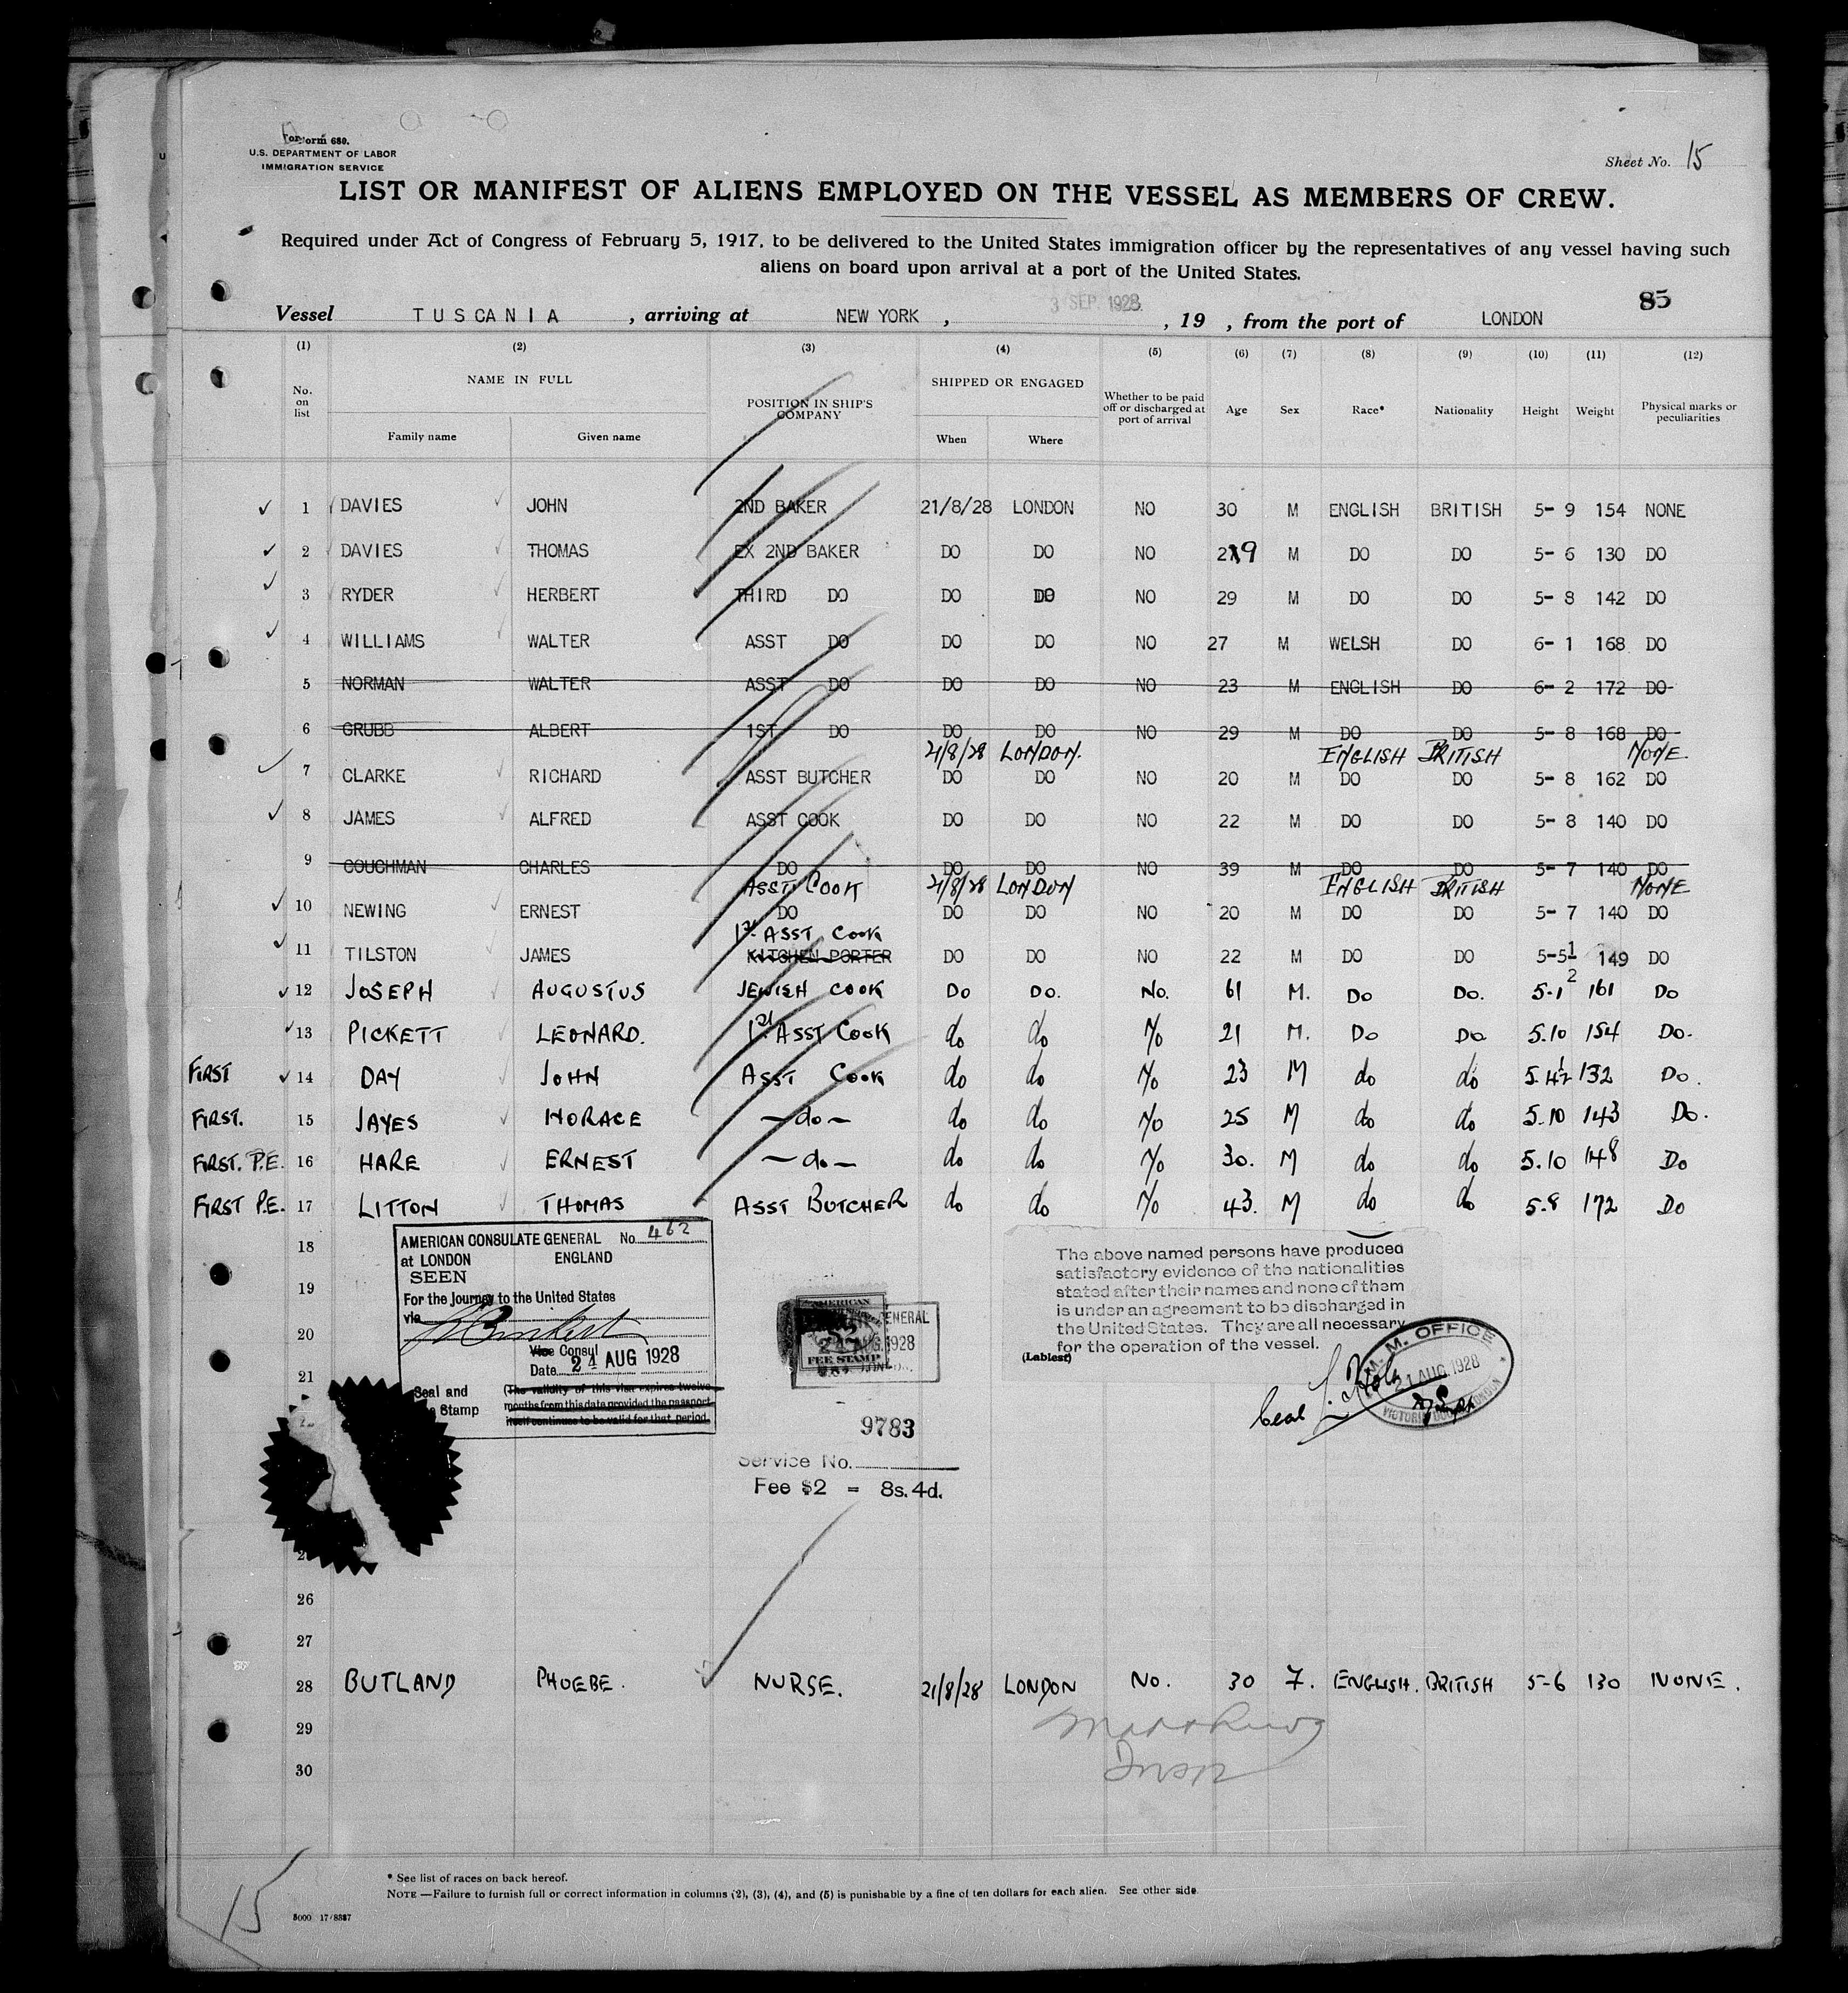 Form 680.
U.S. DEPARTMENT OF LABOR
IMMIGRATION SERVICE
Sheet No. 15
LIST OR MANIFEST OF ALIENS EMPLOYED ON THE VESSEL AS MEMBERS OF CREW.
Required under Act of Congress of February 5, 1917, to be delivered to the United States immigration officer by the representatives of any vessel having such
aliens on board upon arrival at a port of the United States.
85
Vessel TUSCANIA, arriving at NEW YORK, 3 SEP. 1928, 19 , from the port of LONDON
(1) (2) (3) (4) (5) (6) (7) (8) (9) (10) (11) (12)
No. on list NAME IN FULL Family name Given name POSITION IN SHIP'S COMPANY SHIPPED OR ENGAGED When Where Whether to be paid off or discharged at port of arrival Age Sex Race* Nationality Height Weight Physical marks or peculiarities
1 DAVIES JOHN 2ND BAKER 21/8/28 LONDON NO 30 M ENGLISH BRITISH 5- 9 154 NONE
2 DAVIES THOMAS EX 2ND BAKER DO DO NO 29 M DO DO 5- 6 130 DO
3 RYDER HERBERT THIRD DO DO DO NO 29 M DO DO 5- 8 142 DO
4 WILLIAMS WALTER ASST DO DO DO NO 27 M WELSH DO 6- 1 168 DO
5 NORMAN WALTER ASST DO DO DO NO 23 M ENGLISH DO 6- 2 172 DO
6 GRUBB ALBERT 1ST DO DO DO NO 29 M DO DO 5- 8 168 DO
21/8/28 LONDON. ENGLISH BRITISH NONE.
7 CLARKE RICHARD ASST BUTCHER DO DO NO 20 M DO DO 5- 8 162 DO
8 JAMES ALFRED ASST COOK DO DO NO 22 M DO DO 5- 8 140 DO
9 COUCHMAN CHARLES DO DO DO NO 39 M DO DO 5- 7 140 DO
ASST COOK 21/8/28 LONDON ENGLISH BRITISH NONE
10 NEWING ERNEST DO DO DO NO 20 M DO DO 5- 7 140 DO
1st ASST COOK
11 TILSTON JAMES KITCHEN PORTER DO DO NO 22 M DO DO 5-5½ 149 DO
12 JOSEPH AUGUSTUS JEWISH COOK Do Do. No. 61 M. Do Do. 5-1 161 Do
13 PICKETT LEONARD. 1st ASST COOK do do No 21 M. Do Do 5.10 154 Do.
FIRST 14 DAY JOHN ASST COOK do do No 23 M do do 5.4½ 132 Do.
FIRST. 15 JAYES HORACE —do— do do No 25 M do do 5.10 143 Do.
FIRST. P.E. 16 HARE ERNEST —do— do do No 30. M do do 5.10 148 Do
FIRST P.E. 17 LITTON THOMAS ASST BUTCHER do do No 43. M do do 5.8 172 Do
18
19
20
21
AMERICAN CONSULATE GENERAL No. 462
at LONDON ENGLAND
SEEN
For the Journey to the United States
via
Vice Consul
Date 24 AUG 1928
Seal and
Stamp
(The validity of this visa expires twelve
months from this date provided the passport
itself continues to be valid for that period.
AMERICAN
GENERAL
AUG 1928
FEE STAMP
9783
Service No.
Fee $2 = 8s. 4d.
The above named persons have produced
satisfactory evidence of the nationalities
stated after their names and none of them
is under an agreement to be discharged in
the United States. They are all necessary
for the operation of the vessel.
M. M. OFFICE
21 AUG 1928
VICTORIA DOCKS LONDON
26
27
28 BUTLAND PHOEBE. NURSE. 21/8/28 LONDON No. 30 F. ENGLISH. BRITISH 5-6 130 NONE.
29
30
* See list of races on back hereof.
NOTE —Failure to furnish full or correct information in columns (2), (3), (4), and (5) is punishable by a fine of ten dollars for each alien. See other side.
15